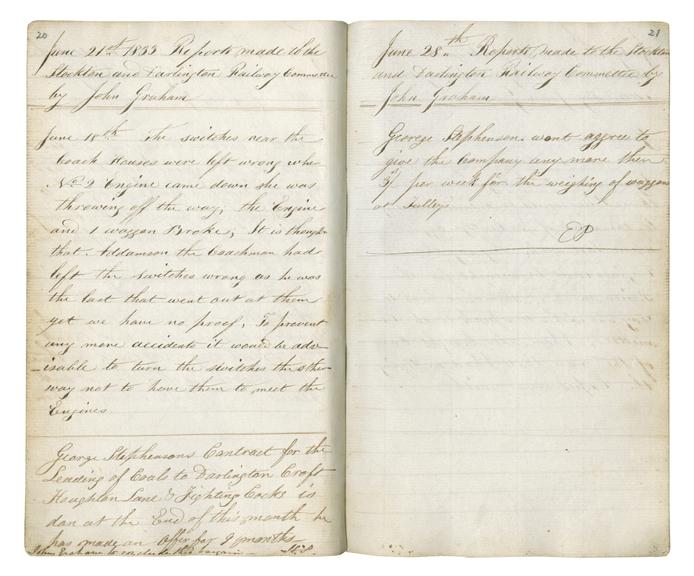 20
June 21st 1833 Reports made to the
Stockton and Darlington Railway Committee
by John Graham
June 18th The switches near the
Coach Houses were left wrong when
No 2 Engine came down she was
throwing off the way, the Engine
and 1 waggon Broke, It is thought
that Addamson the Coachman had
left the switches wrong as he was
the last that went out at them
yet we have no proof, To prevent
any more accidents it would be adv-
isable to turn the switches the other
way not to have them to meet the
Engines
George Stephensons Contract for the
Leading of Coals to Darlington Croft
Houghton Lane & Fighting Cocks is
don at the End of this month he
has made an offer for 9 months
John Graham to conclude this bargain
21
June 28th Reports made to the Stockton
and Darlington Railway Committee by
John Graham
George Stephenson wont aggree to
give the Company any more then
3/ per week for the weighing of waggons
at
EP